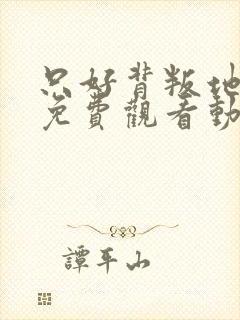 只好背叛地
免費觀看動
譚平山